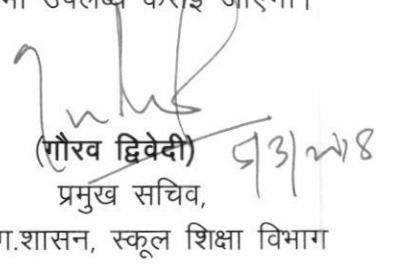 उपलब्ध कराई जाएगी।
(गौरव द्विवेदी)
प्रमुख सचिव,
ग.शासन, स्कूल शिक्षा विभाग